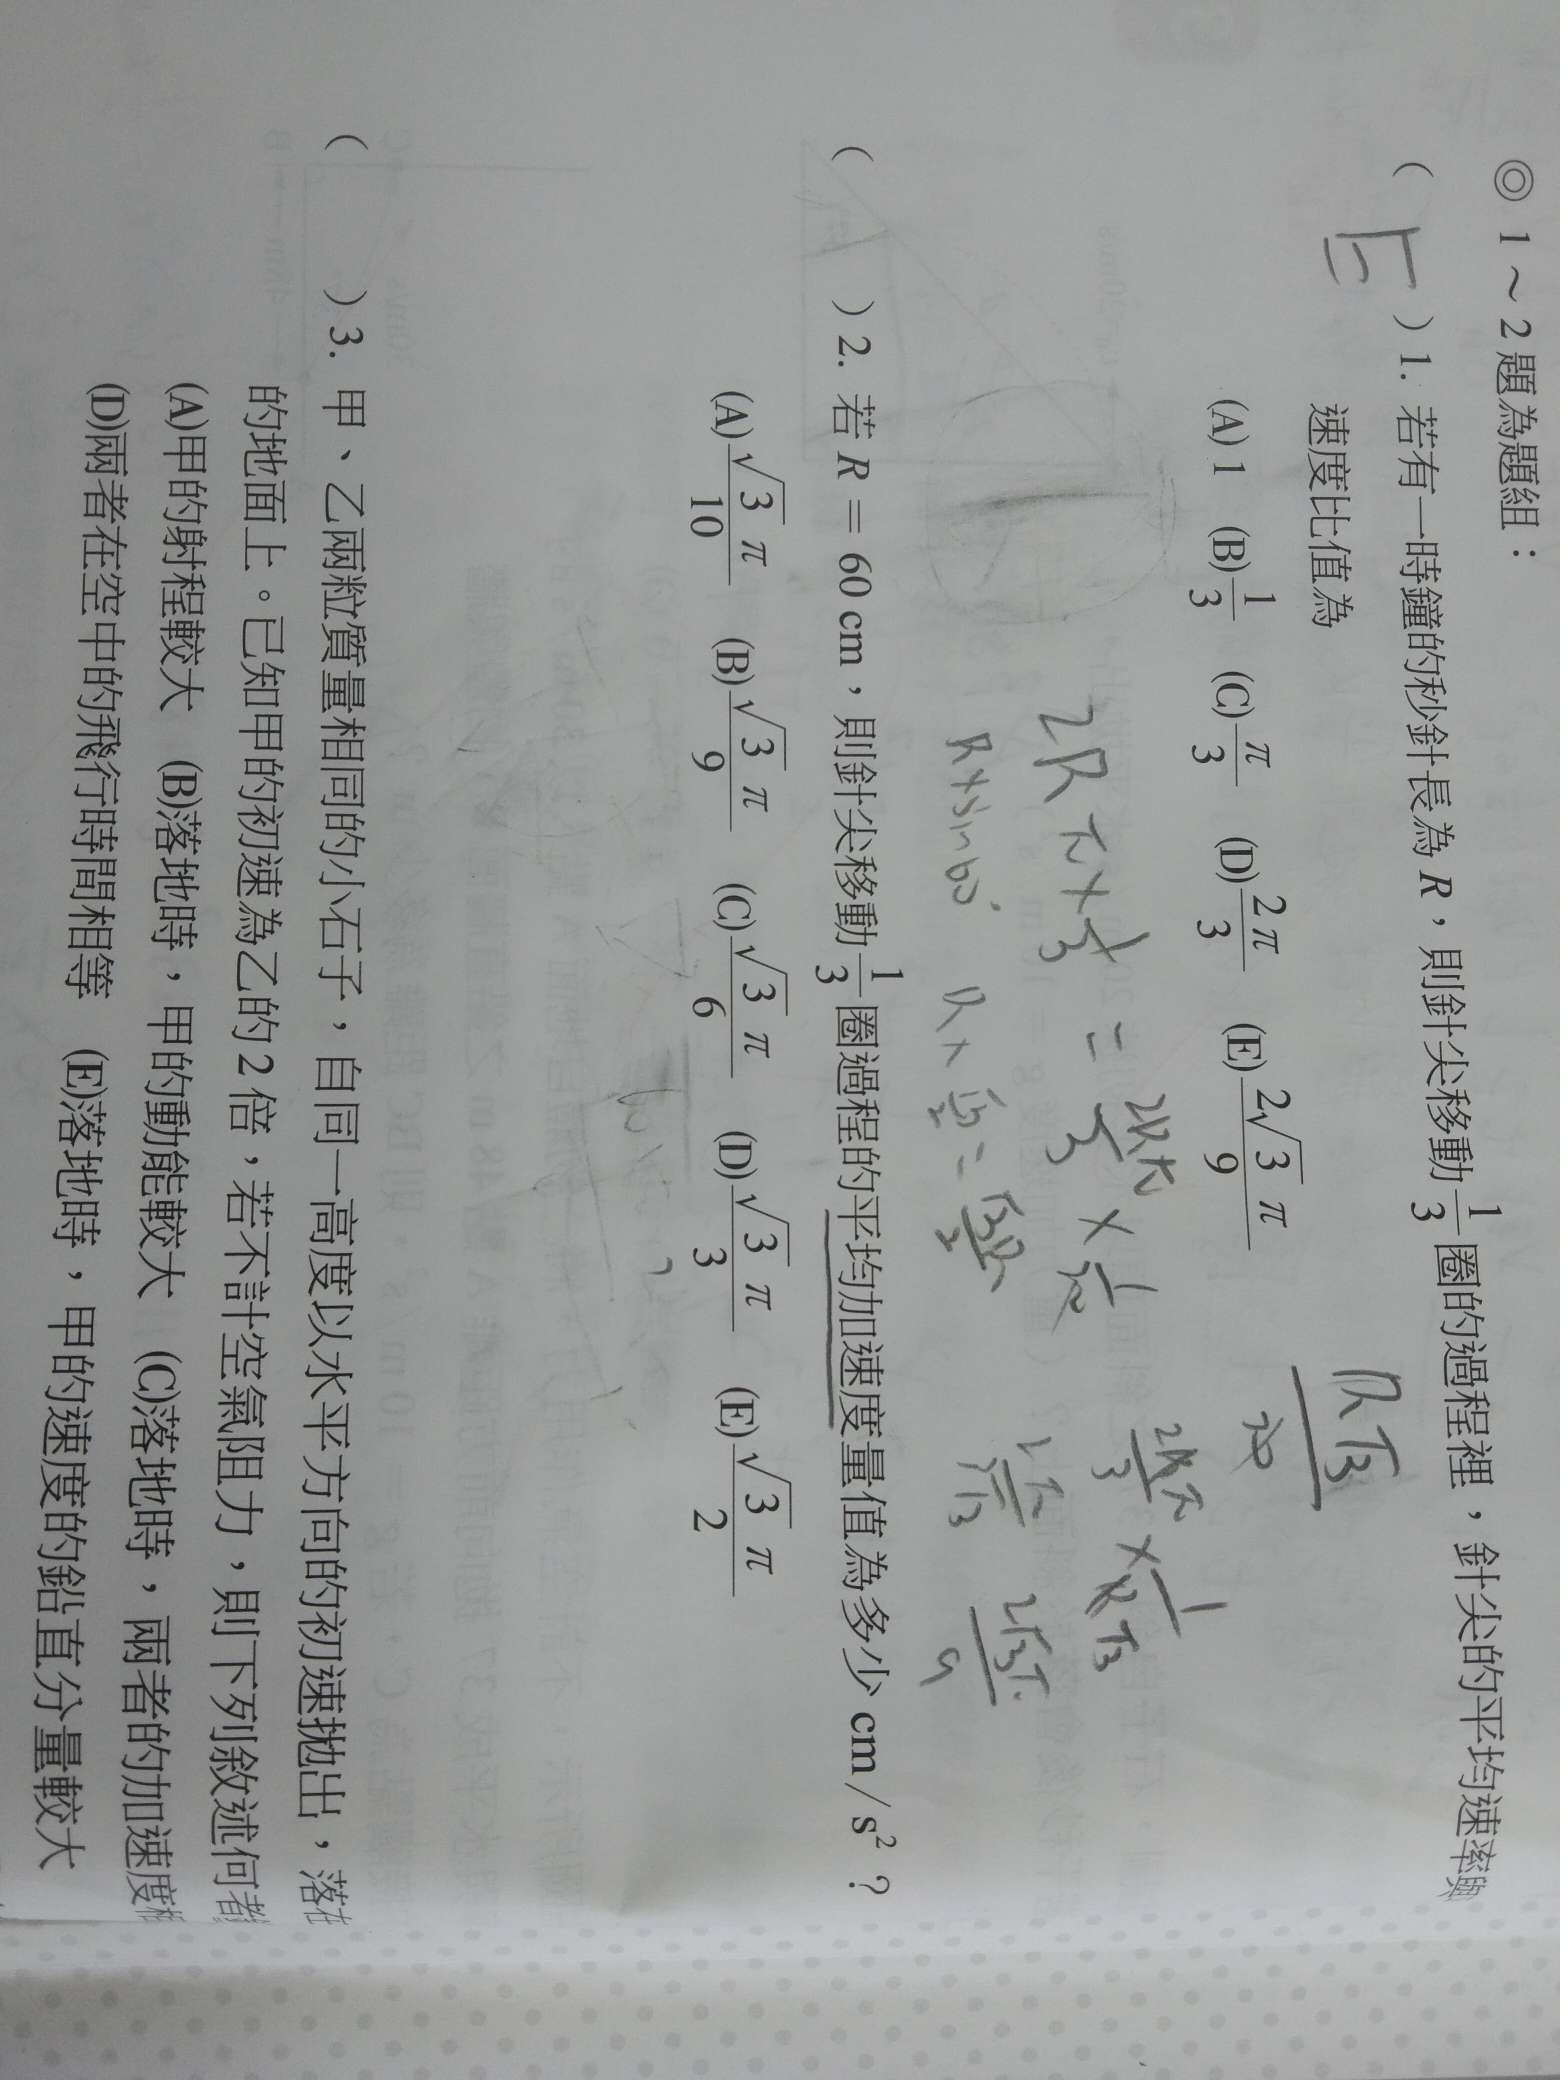 ◎ 1～2題為題組：
( E ) 1. 若有一時鐘的秒針長為 R，則針尖移動 1/3 圈的過程裡，針尖的平均速率與
速度比值為
(A) 1 (B) 1/3 (C) π/3 (D) 2π/3 (E) 2√3π/9
R√3
20
2Rπ×1/3 = 2Rπ/3 × 1/20
2Rπ/3 × 1/R√3
R×sin60° R×√3/2 = √3R/2
2π/3√3 2√3π/9
( ) 2. 若 R = 60 cm，則針尖移動 1/3 圈過程的平均加速度量值為多少 cm/s²？
(A) √3π/10 (B) √3π/9 (C) √3π/6 (D) √3π/3 (E) √3π/2
( ) 3. 甲、乙兩粒質量相同的小石子，自同一高度以水平方向的初速拋出，落在
的地面上。已知甲的初速為乙的 2 倍，若不計空氣阻力，則下列敘述何者
(A)甲的射程較大 (B)落地時，甲的動能較大 (C)落地時，兩者的加速度
(D)兩者在空中的飛行時間相等 (E)落地時，甲的速度的鉛直分量較大